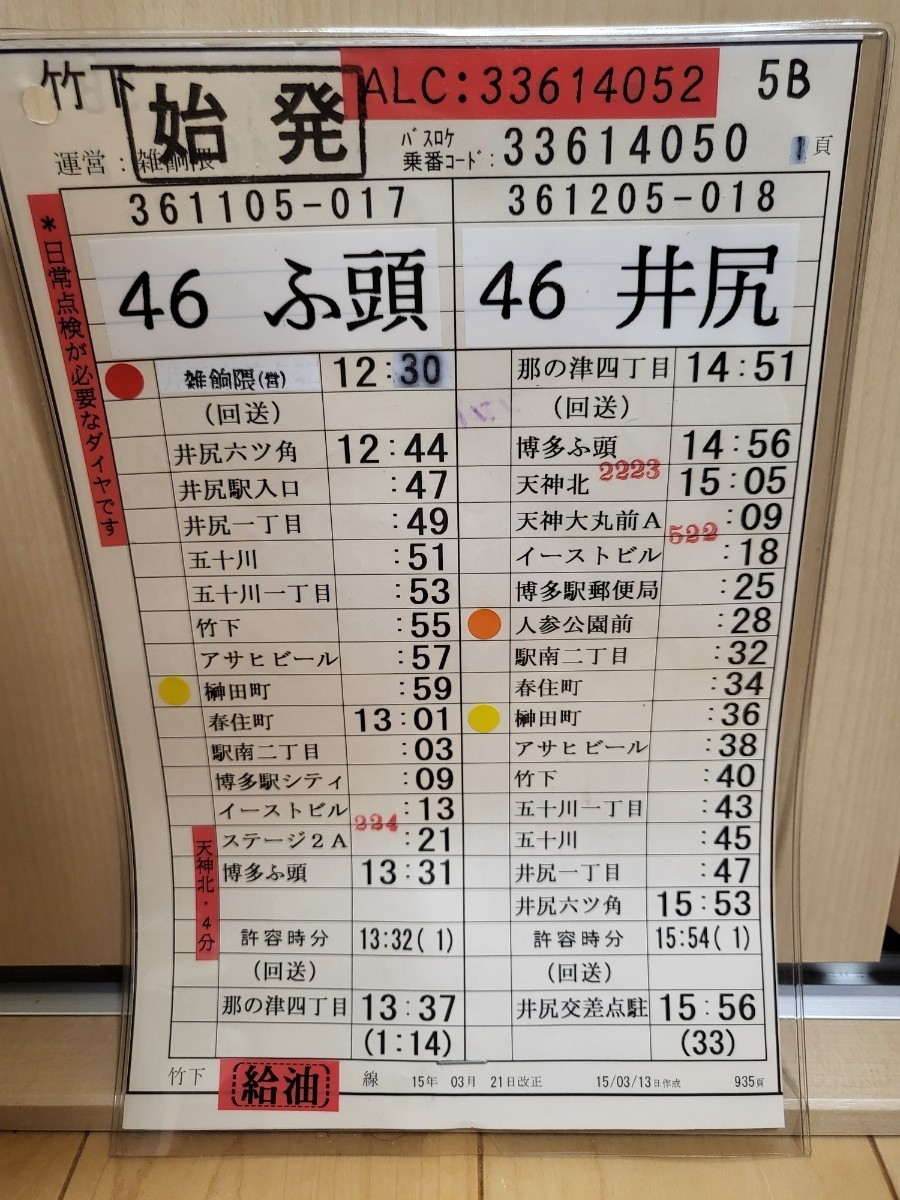 竹下
始発
ALC:33614052
5B
運営:雑餉隈
バスロケ
乗番コード:33614050
1頁
*日常点検が必要なダイヤです
361105-017
46 ふ頭
雑餉隈(営) 12:30
(回送)
井尻六ツ角 12:44
井尻駅入口 :47
井尻一丁目 :49
五十川 :51
五十川一丁目 :53
竹下 :55
アサヒビール :57
榊田町 :59
春住町 13:01
駅南二丁目 :03
博多駅シティ :09
イーストビル :13
224
ステージ2A :21
博多ふ頭 13:31
天神北・4分
許容時分 13:32( 1)
(回送)
那の津四丁目 13:37
(1:14)
361205-018
46 井尻
那の津四丁目 14:51
(回送)
博多ふ頭 14:56
2223
天神北 15:05
天神大丸前A :09
522
イーストビル :18
博多駅郵便局 :25
人参公園前 :28
駅南二丁目 :32
春住町 :34
榊田町 :36
アサヒビール :38
竹下 :40
五十川一丁目 :43
五十川 :45
井尻一丁目 :47
井尻六ツ角 15:53
許容時分 15:54( 1)
(回送)
井尻交差点駐 15:56
(33)
竹下 給油 線 15年 03月 21日改正 15/03/13日作成 935頁